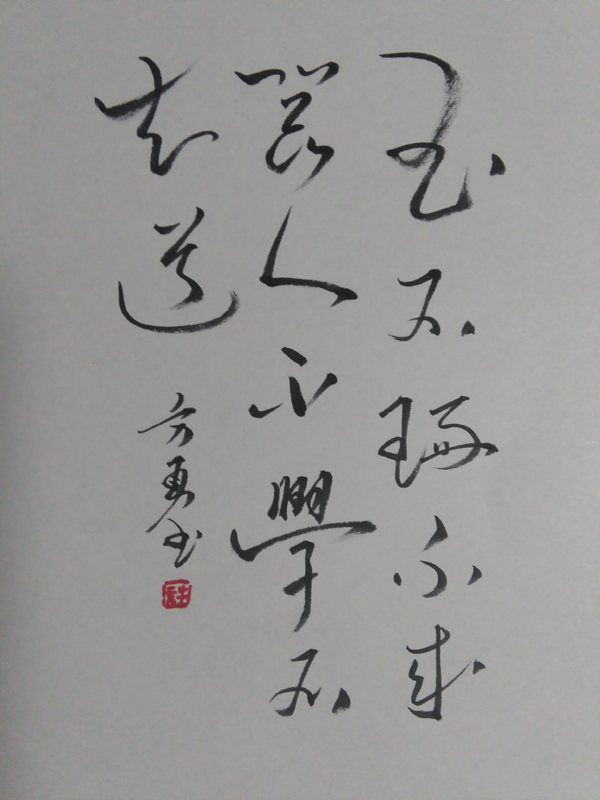 玉不琢不成
器人不學不
知道
方勇书